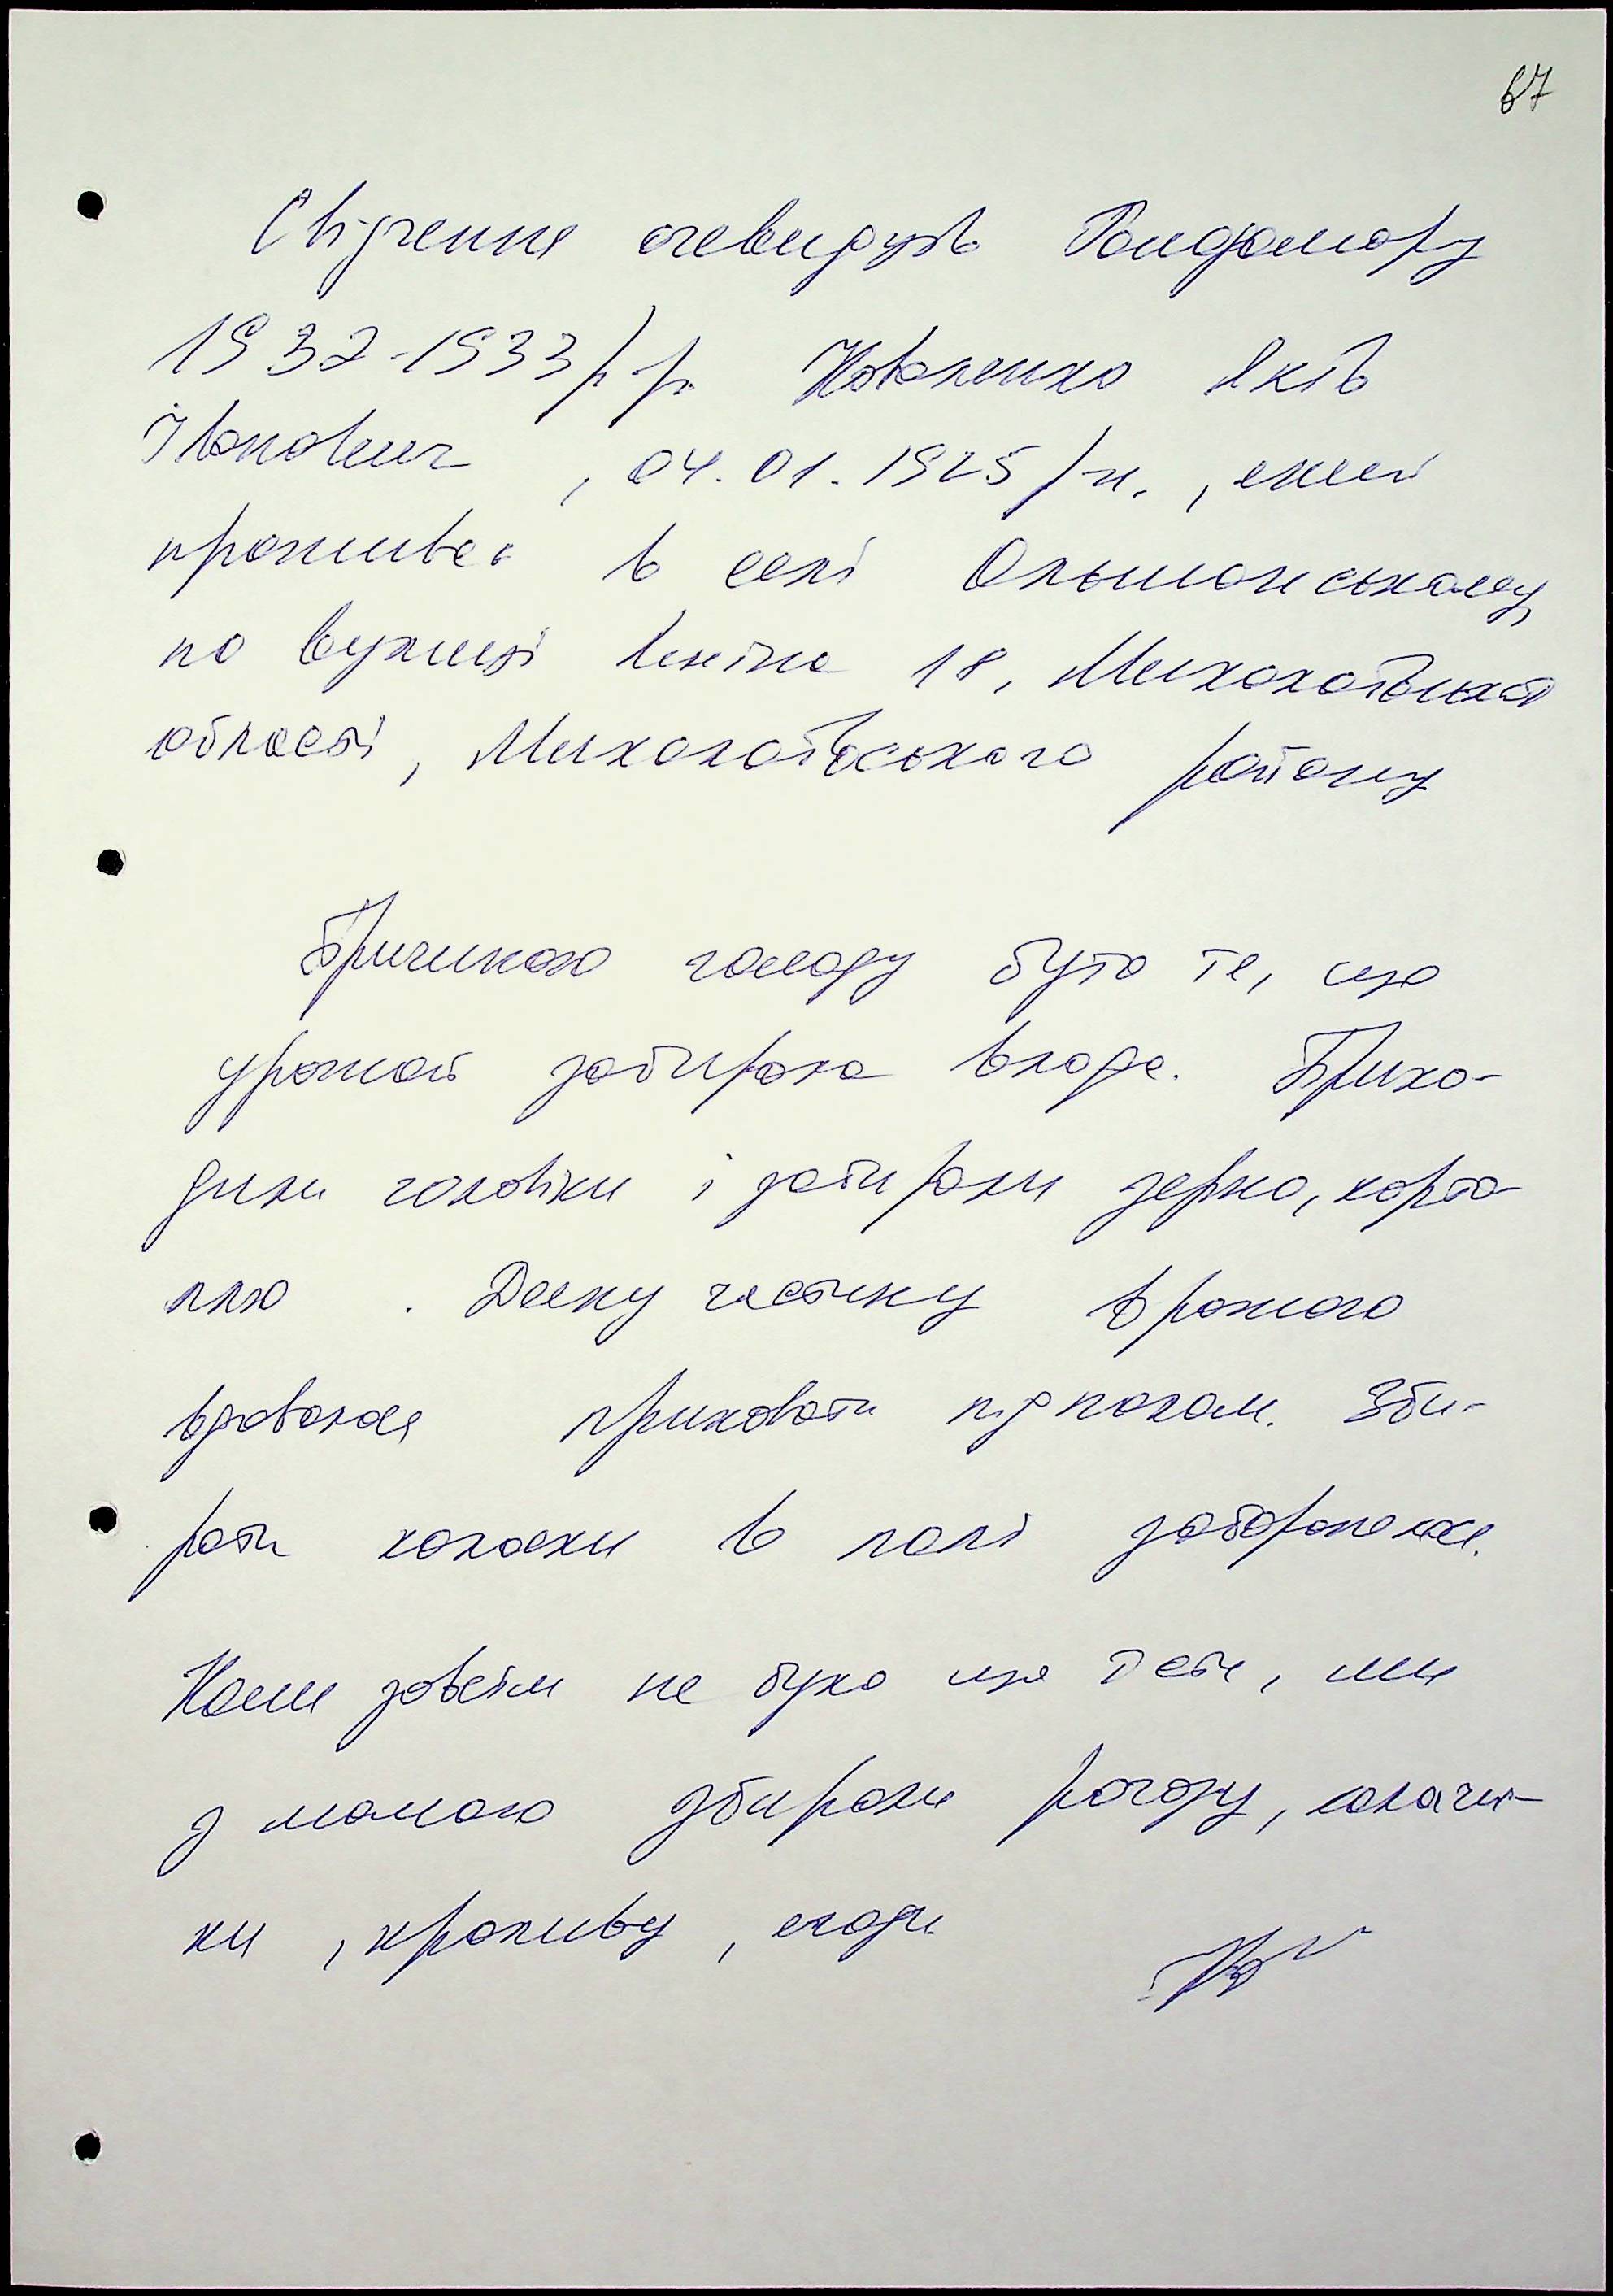 67
Свідчення очевидців Голодомору
1932-1933 р.р. Коваленко Яків
Іванович, 04.01.1925 р.н., який
проживає в селі Ольшанському
по вулиці Леніна 18, Миколаївської
області, Миколаївського району
Причиною голоду було те, що
урожай забирала влада. Прихо-
дили чоловіки і забирали зерно, карто-
плю. Деяку частину врожаю
вдавалося приховати під полом. Зби-
рати колоски в полі заборонялося.
Коли зовсім не було що їсти, ми
з мамою збирали рогозу, калачи-
ки, кропиву, ягоди